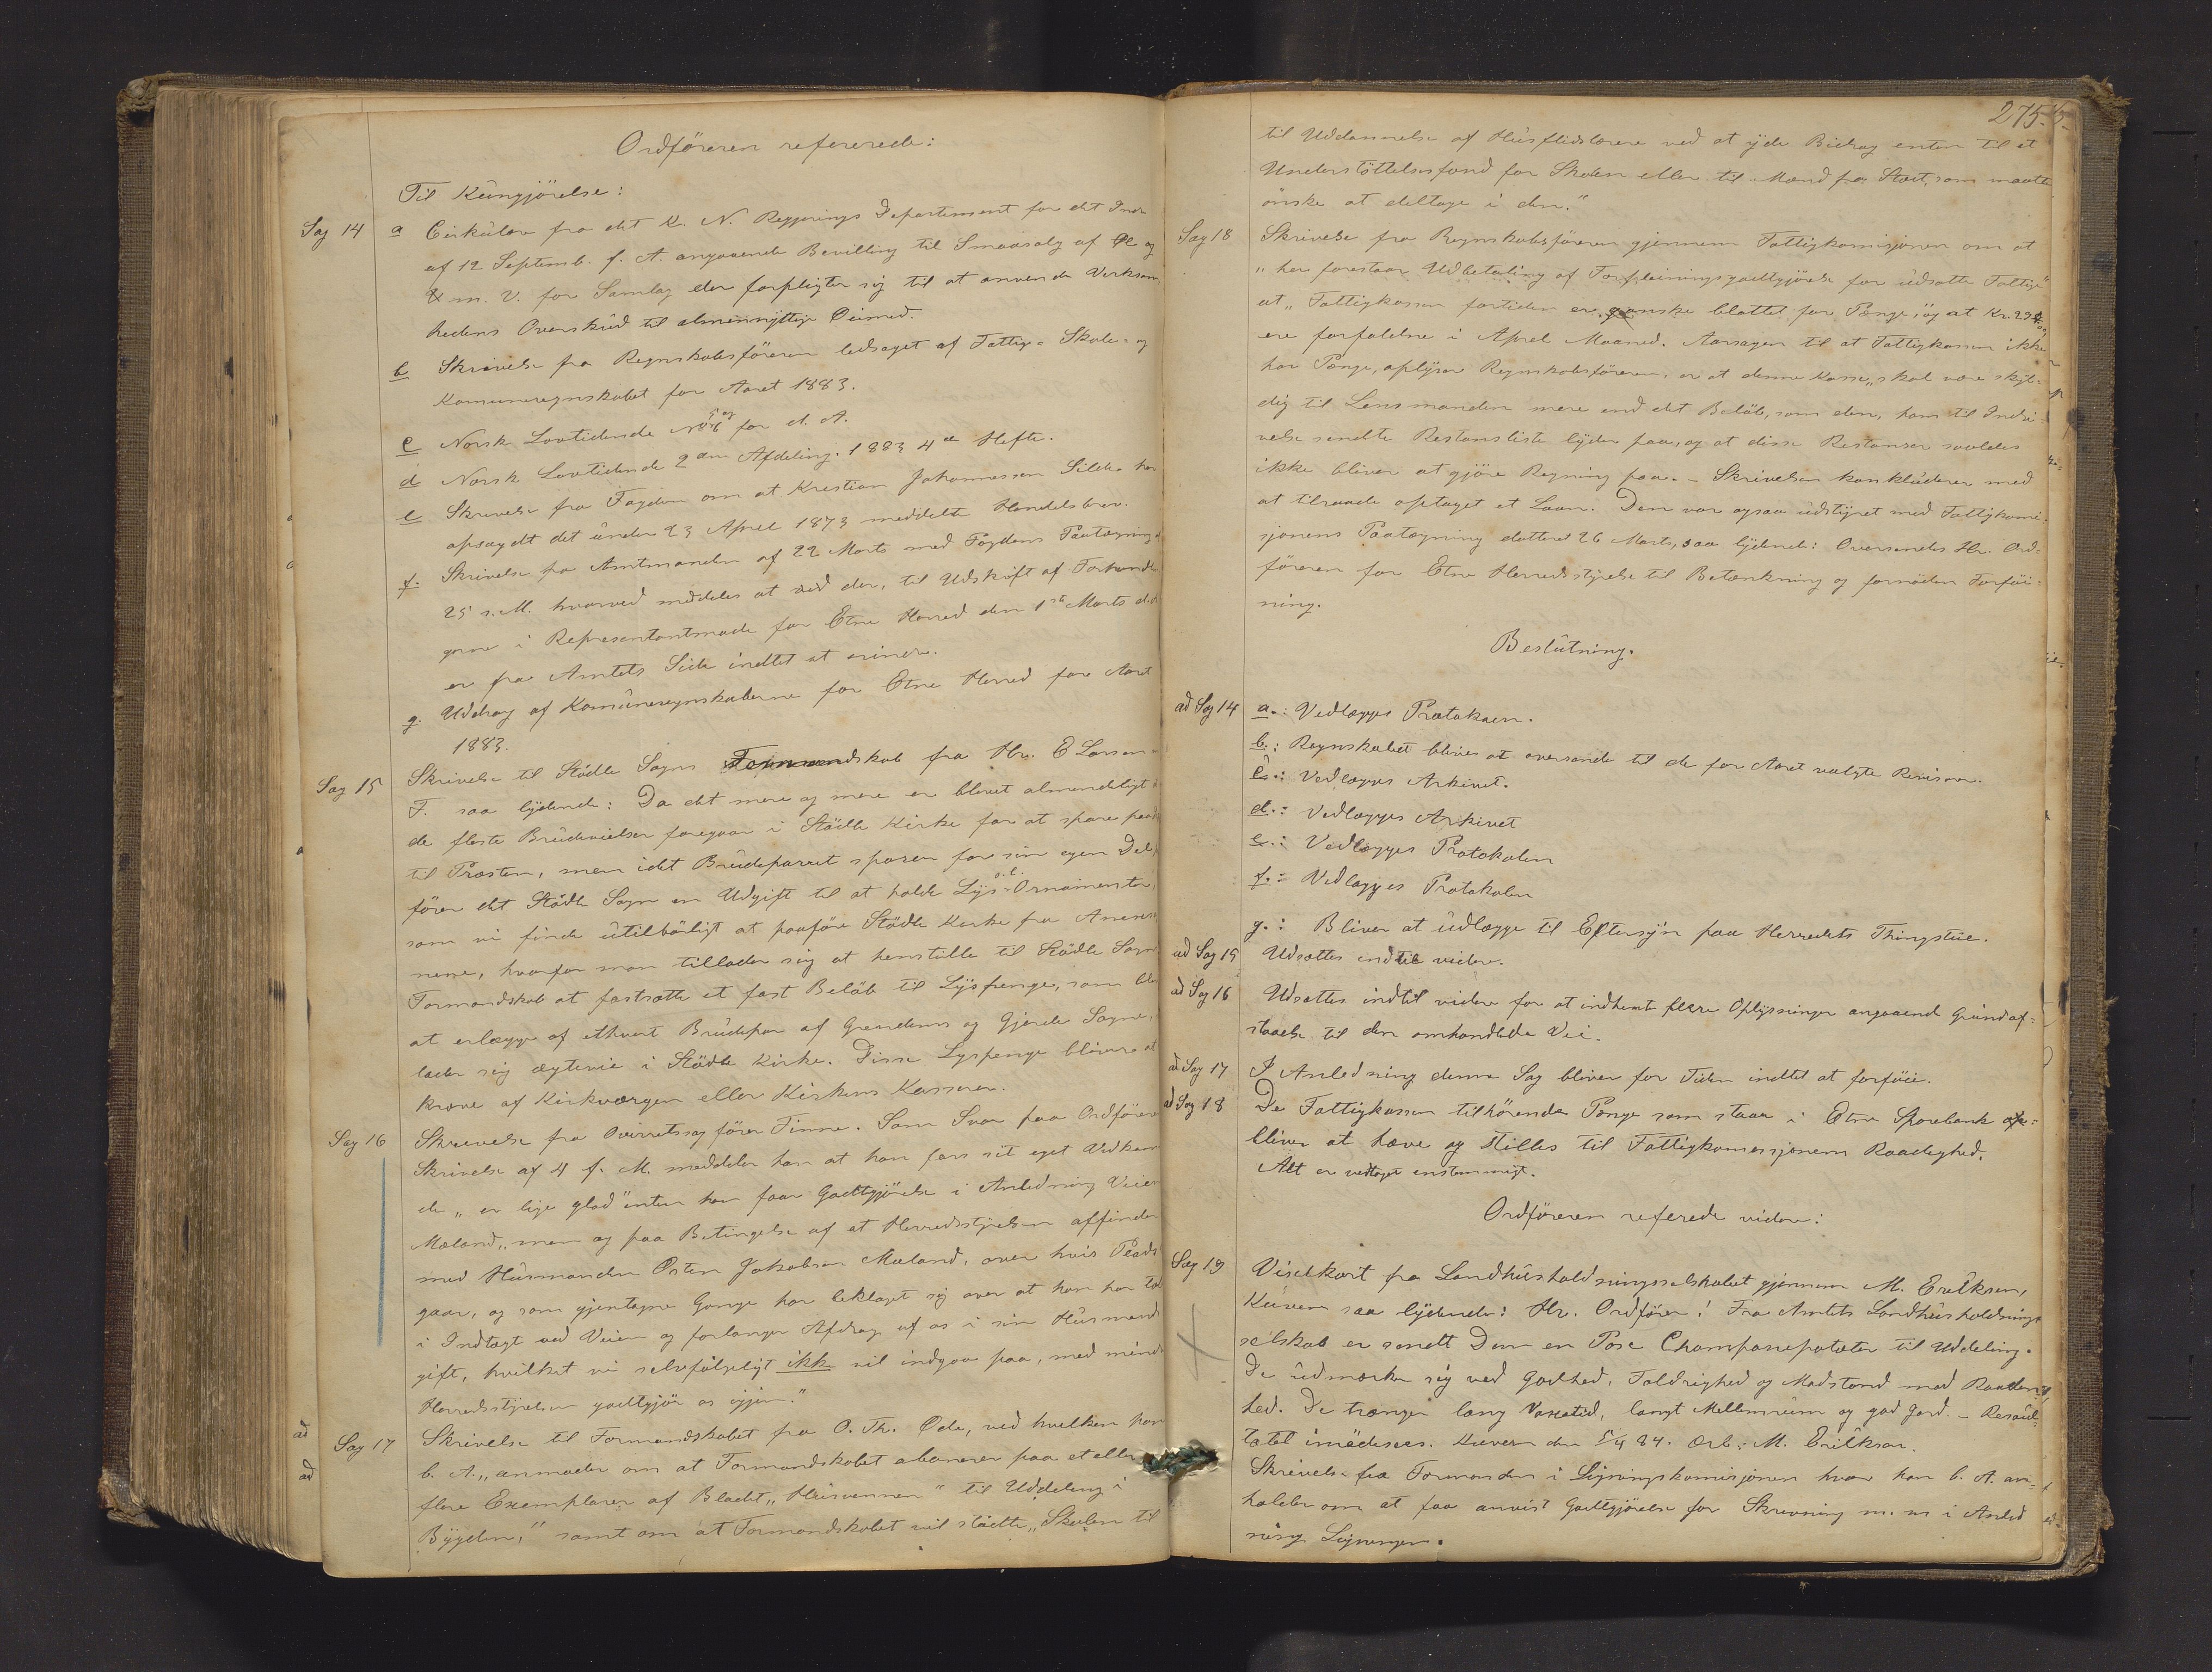 Ordföreren refererede:
Til Kungjörelse:
Sag 14 a Cirkulær fra det K. N. Regjerings Departement for det Indr
af 12 Septemb. f. A. angaaende Bevilling til Smaasalg af Øl og
m. V. for Samlag der forpligter sig til at anvende Virksom
hedens Overskud til almennyttige Öiemed.
b Skrivelse fra Regnskabsföreren ledsaget af Fattig- Skole- og
Komuneregnskabet for Aaret 1883.
c Norsk Lovtidende No 5 og 6 for d. A.
d Norsk Lovtidende 2den Afdeling. 1883 4de Hefte.
e Skrivelse fra Fogden om at Kristian Johannessen Silde har
opsagdt det under 23 April 1873 meddelte Handelsbrev.
f. Skrivelse fra Amtmanden af 22 Marts med Fogdens Paategning
25 s. M. hvorved meddeles at ved den, til Udskrift af Forhandlin
gerne i Representantmøde for Etne Herred den 1ste Marts d.
er fra Amtets Side indtet at erindre.
g. Uddrag af Komuneregnskaberne for Etne Herred for Aaret
1883.
Sag 15 Skrivelse til Stödle Sogns Formandskab fra Hr. E Larsen
F. saa lydende: Da det mere og mere er blevet almendeligt
de fleste Brudevielser foregaar i Stödle Kirke for at spare
til Præsten, men idet Brudeparret sparer for sin egen Del,
förer det Stödle Sogn en Udgift til at holde Lys o. l. Ornamenter,
som vi finde utilbörligt at paaföre Stödle Kirke fra Anexer
nene, hvorfor man tillader sig at henstille til Stödle Sogns
Formandskab at fastsætte et fast Belöb til Lyspenge, som bli
at erlægge af ethvert Brudepar af Grindems og Gjerde Sogne,
lader sig ægtevie i Stödle Kirke. Disse Lyspenge bliver at
kræve af Kirkværgen eller Kirkens Kasserer.
Sag 16 Skrivelse fra Overretssagförer Finne. Som Svar paa Ordförer
Skrivelse af 4 f. M. meddeler han at han for sit eget Vedkom
de „er lige glad" enten han faar Godtgjörelse i Anledning Veien
Mæland, „men og paa Betingelse af at Herredsstyrelsen affinder
med Husmanden Østen Jakobsen Mæland, over hvis Plads
gaar, og som gjentagne Gange har beklaget sig over at han har tab
i Indtægt ved Veien og forlanger Afdrag af os i sin Husmands
gift, hvilket vi selvfölgeligt ikke vil indgaa paa, med mind
Herredsstyrelsen godtgjör os igjen."
ad Sag 17 Skrivelse til Formandskabet fra O. Th. Øde, ved hvilken han
ad b. A. „anmoder om at Formandskabet abonerer paa et eller
flere Exemplarer af Bladet „Husvennen" til Uddeling i
Bygden," samt om at Formandskabet vil stötte „Skolen til
275.
til Uddannelse af Husflidslærere ved at yde Bidrag enten til et
Understöttelsesfond for Skolen eller til Mænd fra Stedet, som maatte
önske at deltage i den."
Sag 18 Skrivelse fra Regnskabsföreren gjennem Fattigkomisjonen om at
„her forestaar Udbetaling af Forpleiningsgodtgjörelse for udsatte Fattige"
at „Fattigkassen fortiden er ganske blottet for Penge", og at Kr.
ere forfaldne i April Maaned. Aarsagen til at Fattigkassen ikke
har Penge, oplyser Regnskabsföreren, er at denne Kasse „skal være skyl-
dig til Lensmanden mere end det Belöb, som den, ham til Inddri-
velse sendte Restanseliste lyder paa, og at disse Restanser saaledes
ikke bliver at gjöre Regning paa. - Skrivelsen konkluderer med
at tilraade optaget et Laan. Den var ogsaa udstyret med Fattigkomi-
sjonens Paategning datteret 26 Marts, saa lydende: Oversendes Hr. Ord-
föreren for Etne Herredsstyrelse til Betænkning og fornöden Forföi-
ning.
Beslutning.
ad Sag 14 a.: Vedlægges Protokoen.
b.: Regnskabet bliver at oversende til de for Aaret valgte Revisorer.
c.: Vedlægges Arkivet.
d.: Vedlægges Arkivet
e.: Vedlægges Protokolen
f.: Vedlægges Protokolen
g.: Bliver at udlægge til Eftersyn paa Herredets Thingstue.
ad Sag 15 Udsættes indtil videre.
ad Sag 16 Udsættes indtil videre for at indhente flere Oplysninger angaaend Grundaf-
staaelse til den omhandlede Vei.
ad Sag 17 I Anledning denne Sag bliver for Tiden indtet at forföie.
ad Sag 18 De Fattigkassen tilhörende Penge som staar i Etne Sparebank
bliver at hæve og stilles til Fattigkomissjonens Raadighed.
Alt er vedtaget enstemmigt.
Ordföreren referede videre:
Sag 19 Visitkort fra Landhusholdningsselskabet gjennem M. Eriksen,
saa lydende: Hr. Ordförer! Fra Amtets Landhusholdnings
selskab er sendt Dem en Pose Championpoteter til Uddeling.
De udmærker sig ved Godhed, Foldrighed og Modstand mod Raaden-
hed. De trænger lang Voxetid, langt Mellemrum og god Jord. - Resul-
tatet imödesees. den 5/4 84. Ærb: M. Eriksen.
Skrivelse fra Formanden i Ligningskomisjonen hvor han b. A. an-
holder om at faa anvist Godtgjörelse for Skrivning m. m i Anled
ning Ligningen.